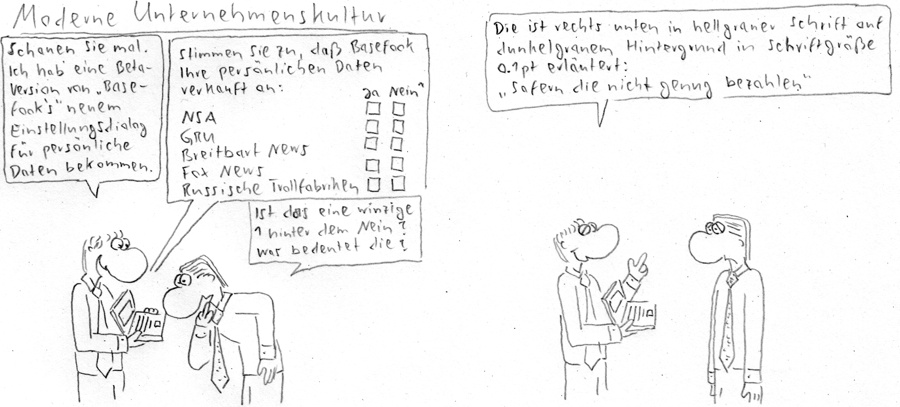 Moderne Unternehmenskultur
Schauen Sie mal.
Ich hab' eine Beta-
version von „Base-
fook's" neuem
Einstellungsdialog
für persönliche
Daten bekommen.
Stimmen Sie zu, daß Basefook
Ihre persönlichen Daten
verkauft an:
Ja Nein¹
NSA
GRU
Breitbart News
Fox News
Russische Trollfabriken
Ist das eine winzige
1 hinter dem Nein?
Was bedeutet die?
Die ist rechts unten in hellgrauer Schrift auf
dunkelgrauem Hintergrund in Schriftgröße
0.1pt erläutert:
„Sofern die nicht genug bezahlen"